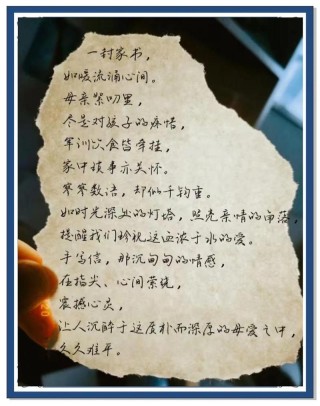 一封家书，
如暖流涌心间。
母亲絮叨里，
尽是对孩子的疼惜，
军训饮食皆牵挂，
家中琐事亦关怀。
寥寥数语，却似千钧重。
如时光深处的灯塔，照亮亲情的角落，
提醒我们珍视这血浓于水的爱。
手写信，那沉甸甸的情感，
在指尖、心间萦绕，
震撼心灵，
让人沉醉于这质朴而深厚的母爱之中，
久久难平。